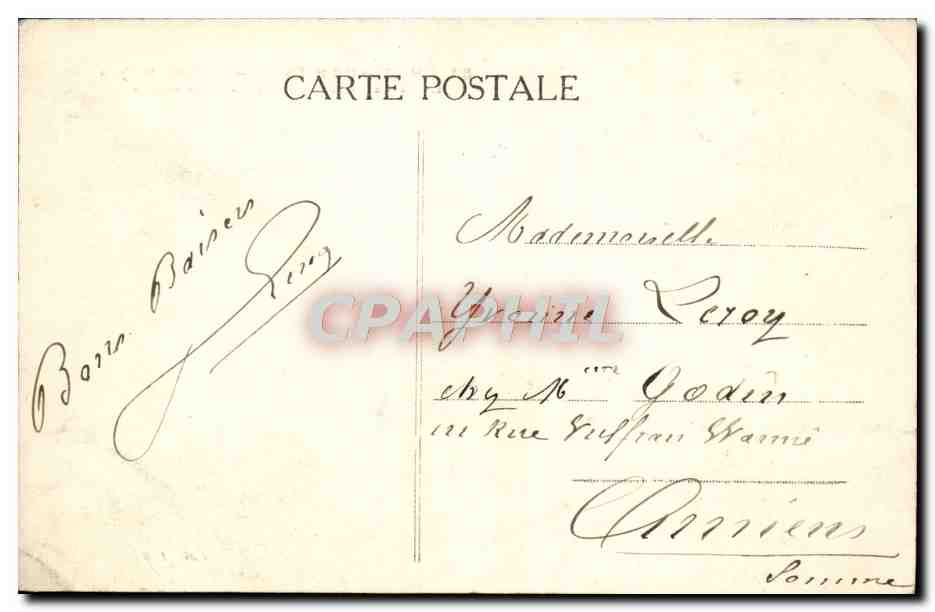 CARTE POSTALE
Bons Baisers
Mademoiselle
Yvonne Leroy
chez Mme Godin
111 Rue Vulfran Warmé
Amiens
Somme
CPAPHIL